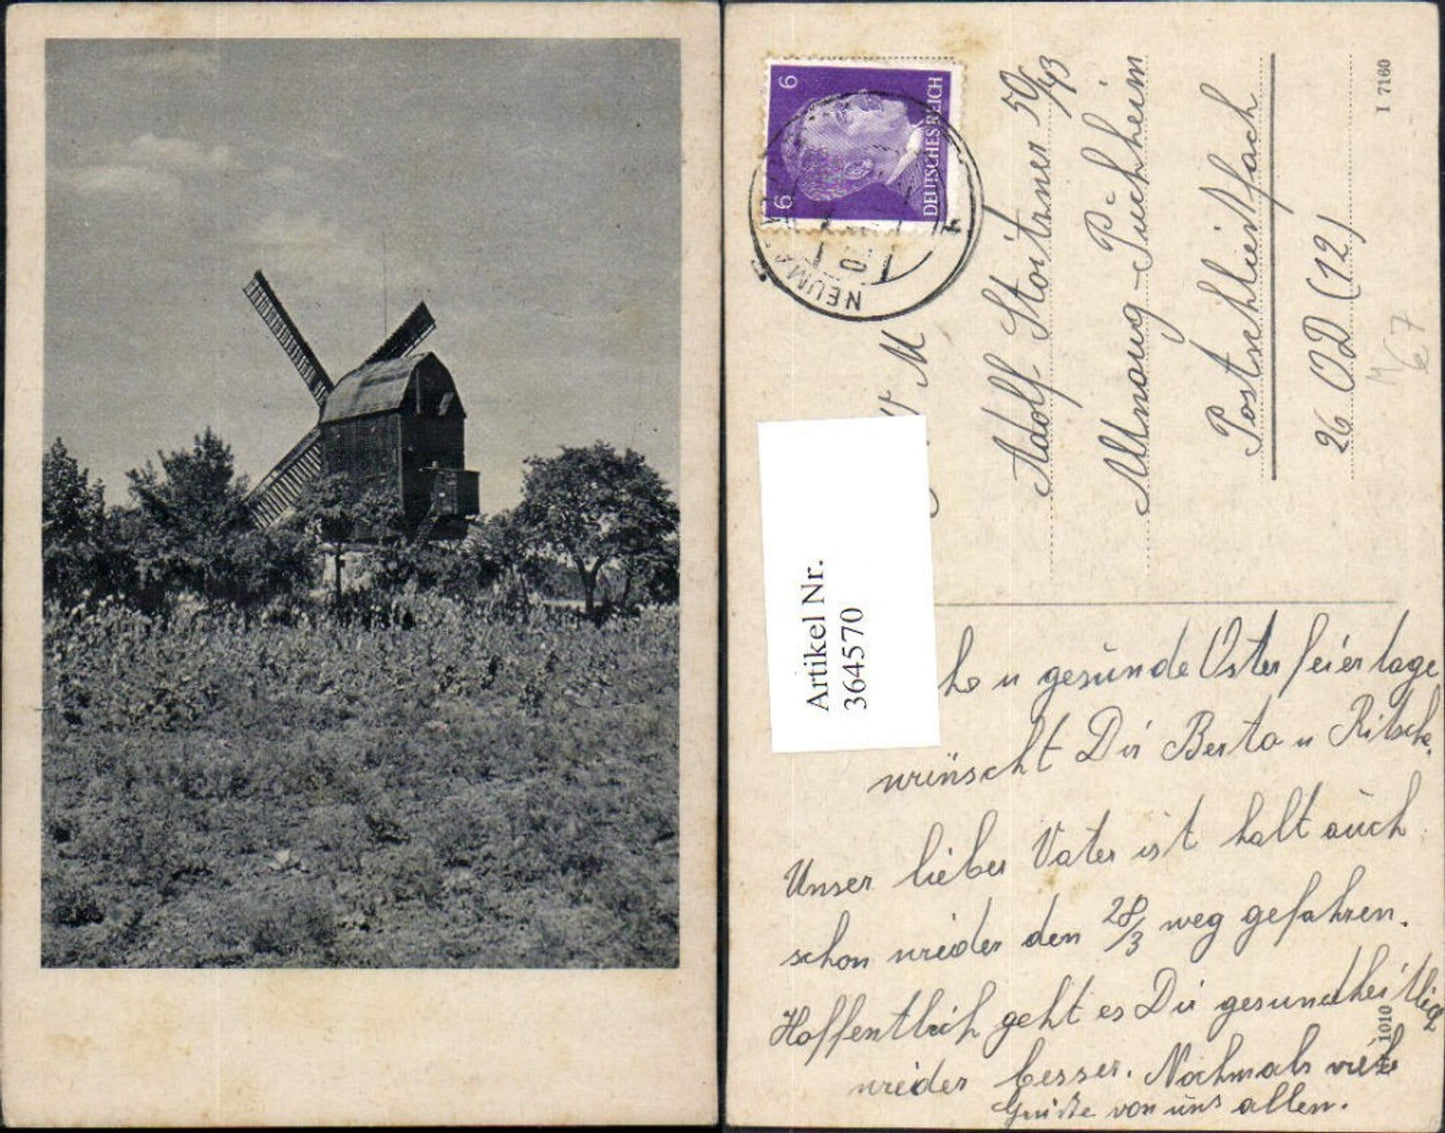 6
6
DEUTSCHES REICH
NEUM
M
Adolf Stoitzner 50/43
Attnang-Puchheim
Postschließfach
26 OD (12)
I 7160
M
67
Artikel Nr.
364570
he u gesunde Osterfeiertage
wünscht Dir Berta u Ritsche.
Unser lieber Vater ist halt auch
schon wieder den 28/3 weg gefahren.
Hoffentlich geht es Dir gesundheitlich
wieder besser. Nochmals viele
Grüße von uns allen.
1010